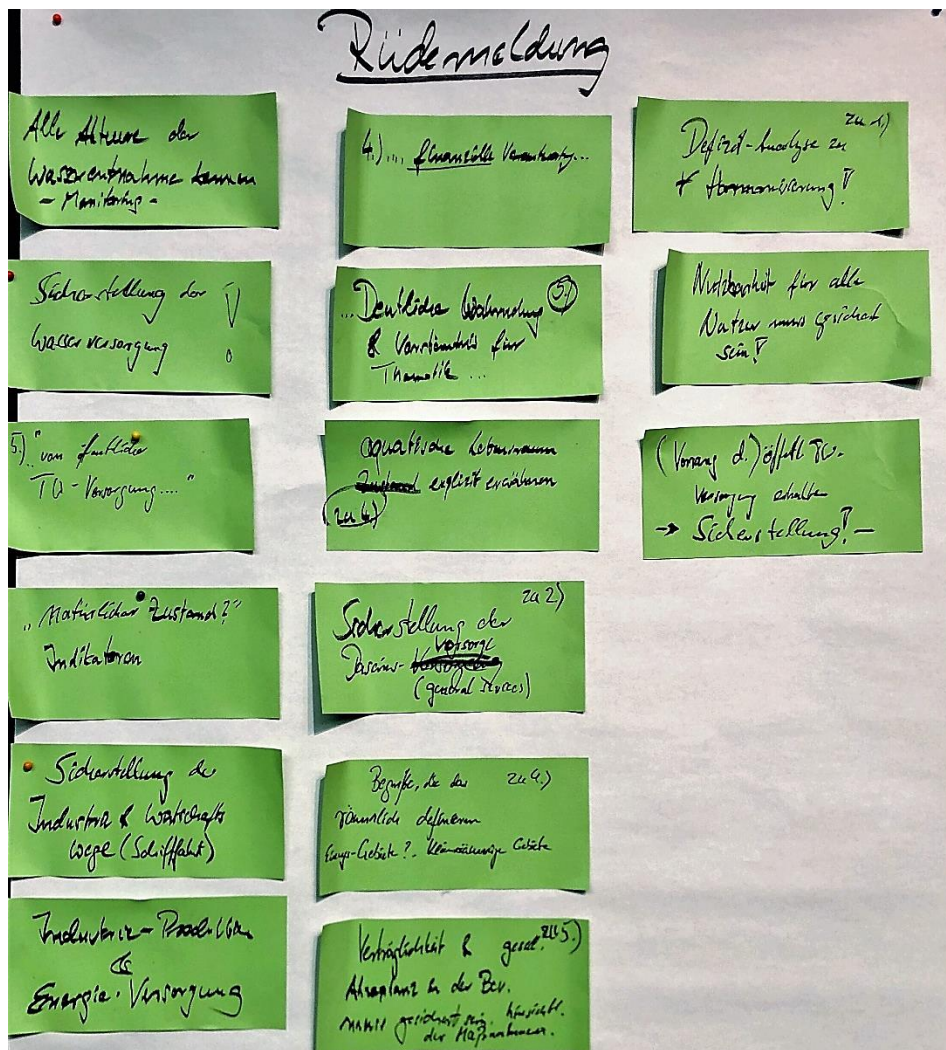 Rückmeldung
Alle Akteure der
Wasserentnahme kennen
- Monitoring -
Sicherstellung der
Wasserversorgung !
5.) "von öffentliche
TW-Versorgung...."
"Natürlicher Zustand?"
Indikatoren
Sicherstellung der
Industrie & Wirtschafts
wege (Schifffahrt)
Industrie-Produktion
&
Energie-Versorgung
4.) ... finanzielle Verantwortung...
...Deutliche Wahrnehmung 5.)
& Verständnis für
Thematik ...
aquatische Lebensraum
explizit erwähnen
zu 4)
zu 2)
Sicherstellung der
Daseins-vorsorge
(general services)
Begriffe, die das zu 4.)
räumlich definieren
Einzugs-Gebiete? - kleinräumige Gebiete
Verträglichkeit & gesel. zu 5.)
Akzeptanz in der Bev.
muss gesichert sein hinsichtl.
der Maßnahmen.
zu 1)
Defizit-Analyse zu
Harmonisierung!
Nutzbarkeit für alle
Natur muss gesichert
sein!
(Vorrang d.) öffentl. TW-
Versorgung erhalten
→ Sicherstellung! -